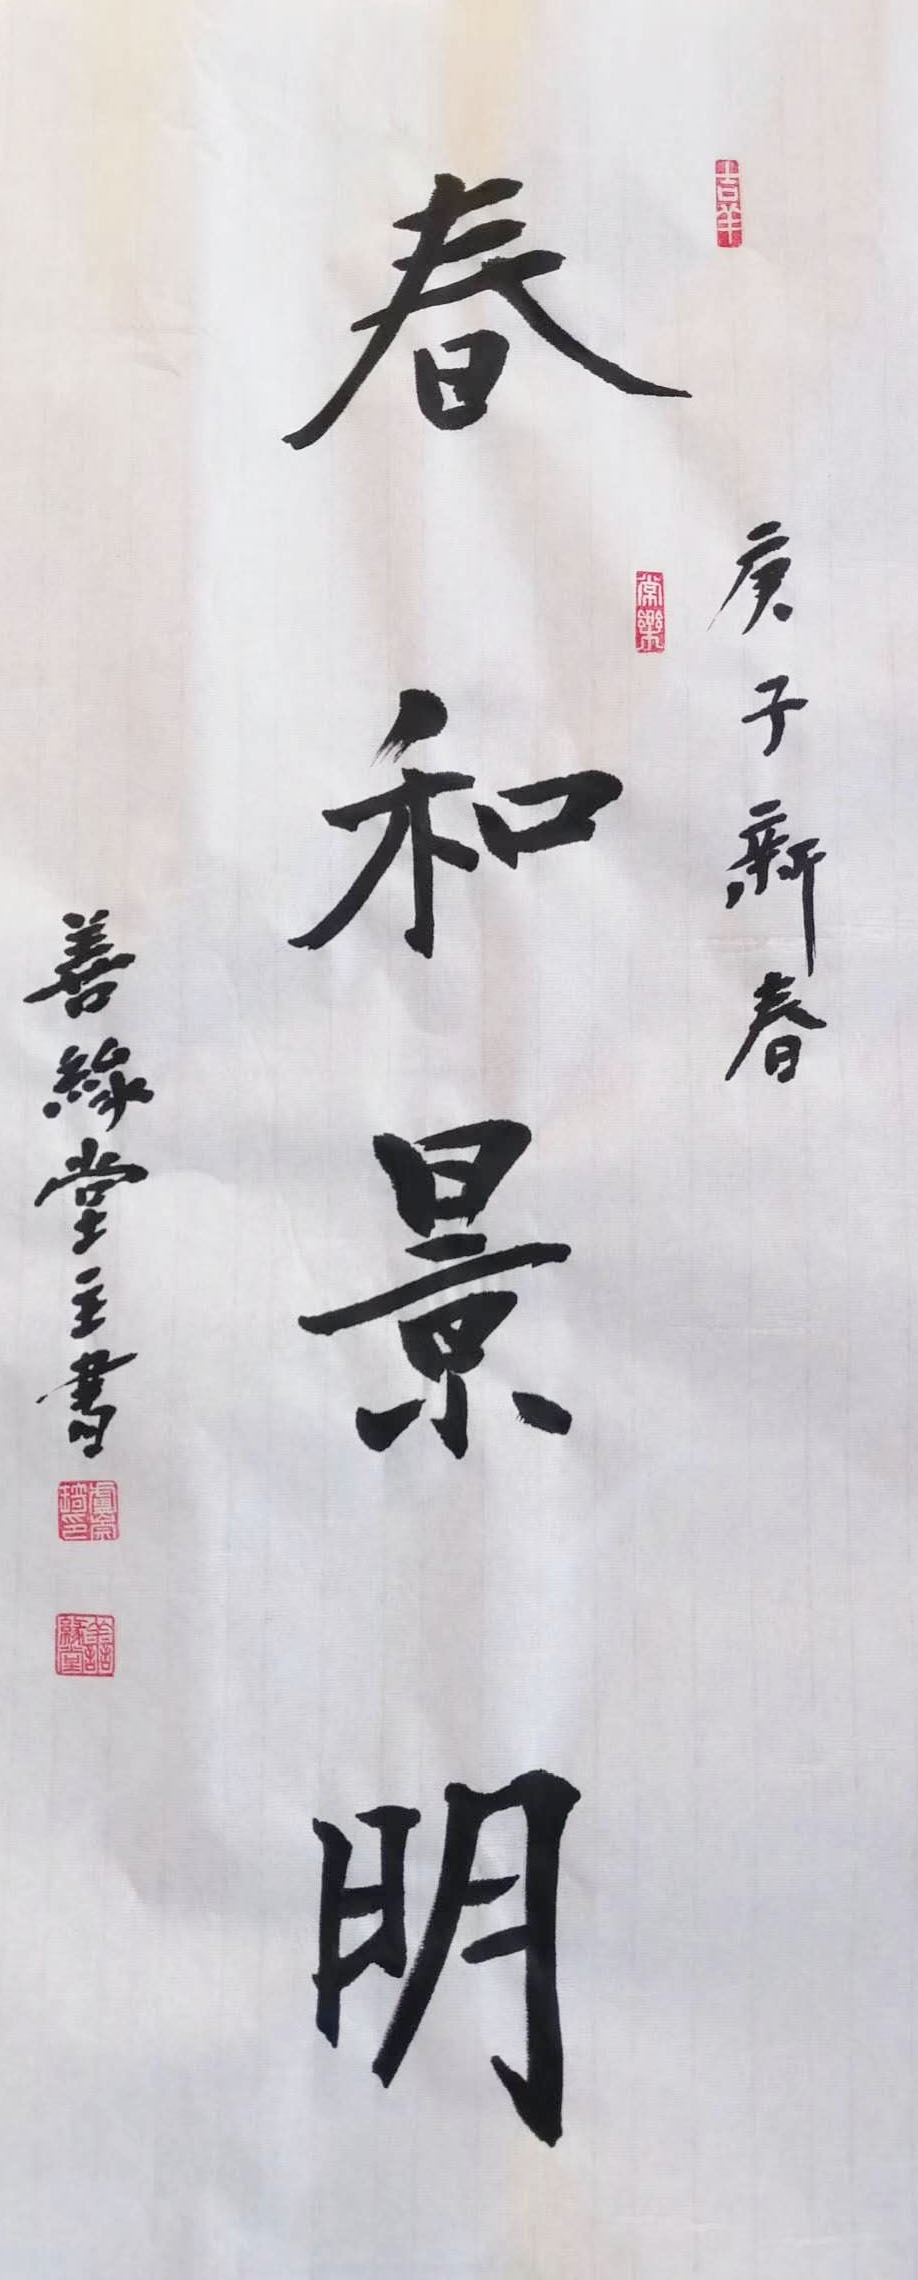 庚子新春
春和景明
善緣堂主書
吉羊
常樂
善緣堂